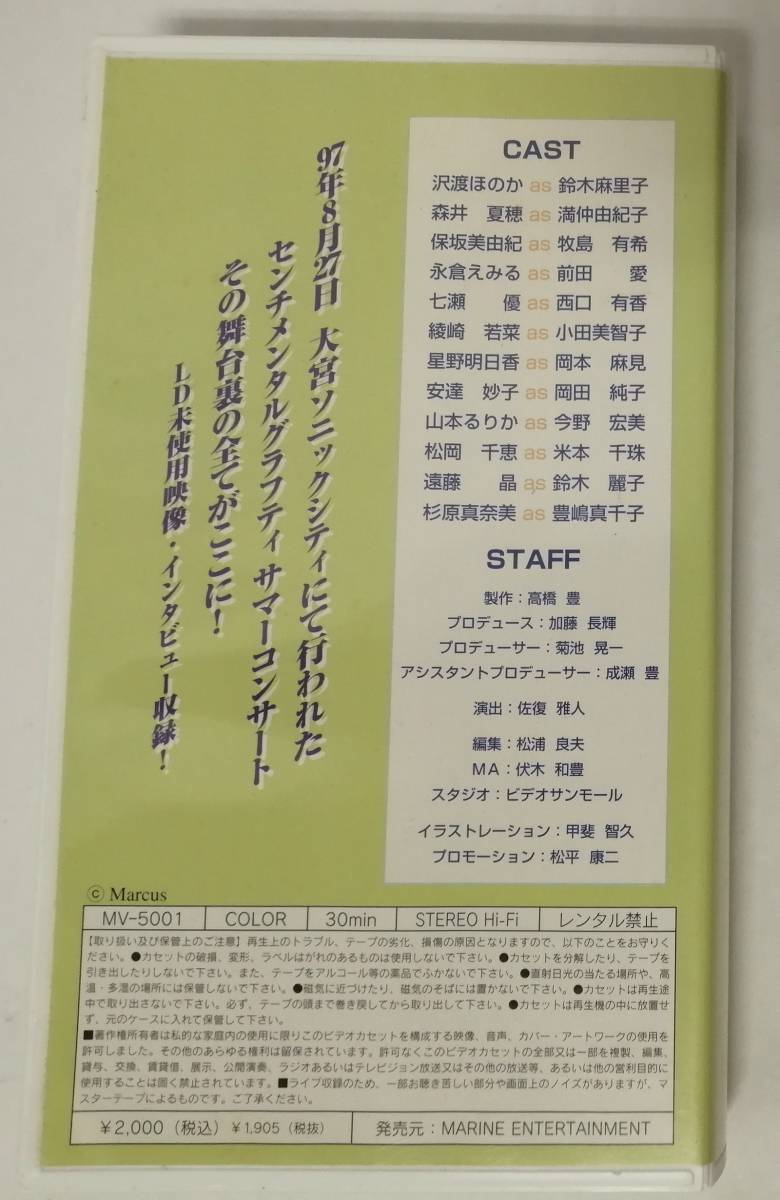 97年8月27日 大宮ソニックシティにて行われた
センチメンタルグラフティ サマーコンサート
その舞台裏の全てがここに!
LD未使用映像・インタビュー収録!
CAST
沢渡ほのか as 鈴木麻里子
森井 夏穂 as 満仲由紀子
保坂美由紀 as 牧島 有希
永倉えみる as 前田 愛
七瀬 優 as 西口 有香
綾崎 若菜 as 小田美智子
星野明日香 as 岡本 麻見
安達 妙子 as 岡田 純子
山本るりか as 今野 宏美
松岡 千恵 as 米本 千珠
遠藤 晶 as 鈴木 麗子
杉原真奈美 as 豊嶋真千子
STAFF
製作:高橋 豊
プロデュース:加藤 長輝
プロデューサー:菊池 晃一
アシスタントプロデューサー:成瀬 豊
演出:佐復 雅人
編集:松浦 良夫
MA:伏木 和豊
スタジオ:ビデオサンモール
イラストレーション:甲斐 智久
プロモーション:松平 康二
© Marcus
MV-5001 COLOR 30min STEREO Hi-Fi レンタル禁止
【取り扱い及び保管上のご注意】再生上のトラブル、テープの劣化、損傷の原因となりますので、以下のことをお守りく
ださい。●カセットの破損、変形、ラベルはがれのあるものは使用しないで下さい。●カセットを分解したり、テープを
引き出したりしないで下さい。また、テープをアルコール等の薬品でふかないで下さい。●直射日光の当たる場所や、高
温・多湿の場所には保管しないで下さい。●磁気に近づけたり、磁気のそばには置かないで下さい。●カセットは再生途
中で取り出さないで下さい。必ず、テープの頭まで巻き戻してから取り出して下さい。●カセットは再生機の中に放置せ
ず、元のケースに入れて保管して下さい。
■著作権所有者は私的な家庭内の使用に限りこのビデオカセットを構成する映像、音声、カバー・アートワークの使用を
許可しました。その他のあらゆる権利は留保されています。許可なくこのビデオカセットの全部又は一部を複製、編集、
貸与、交換、賃貸借、展示、公開演奏、ラジオあるいはテレビジョン放送又はその他の放送等、あるいは他の営利目的に
使用することは固く禁止されています。■ライブ収録のため、一部お聴き苦しい部分や画面上のノイズがありますが、マ
スターテープによるものです。ご了承ください。
¥2,000(税込) ¥1,905(税抜) 発売元:MARINE ENTERTAINMENT